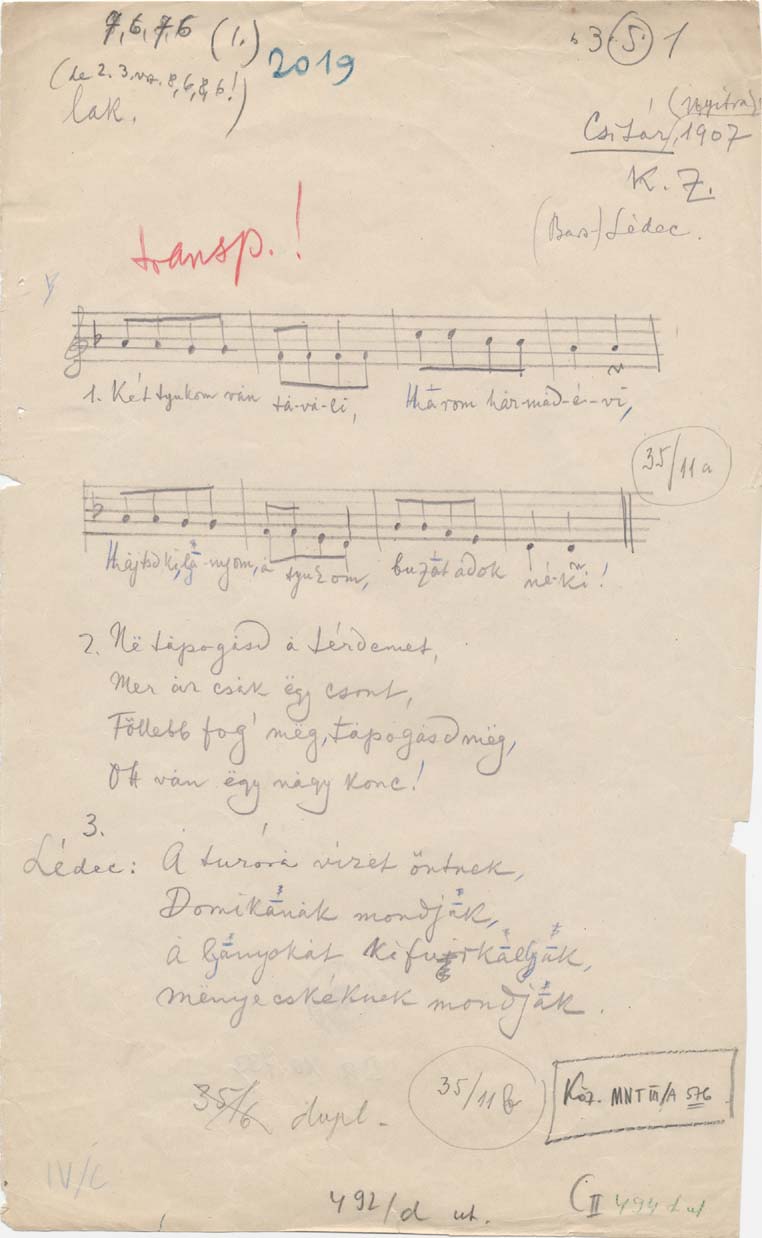 7, 6, 7, 6 (1.)
(de 2. 3. vsz. 8, 6, 8, 6!)
lak.
2019
3 5 1
(Nyitra)
Csitár, 1907
K. Z.
(Bars-) Lédec.
transp.!
1. Két tyukom ván tá-vá-li, Három hár-mad-é--vi,
35/11a
Hájtsd ki, lá-nyom, á tyukom, buzát ádok né-ki!
2. Në tápogásd á térdemet,
Mer áz csák ëgy csont,
Föllebb fog' mëg, tápogásd mëg,
Ott ván ëgy nágy konc!
3.
Lédec: Á turóra vizet öntnek,
Domikának mondják,
á lányokát kifurkálják,
mënyecskéknek mondják.
35/6 dupl.
35/11b
Köz. MNT III/A 576
IV/C
492/d ut.
C II 494 d ut